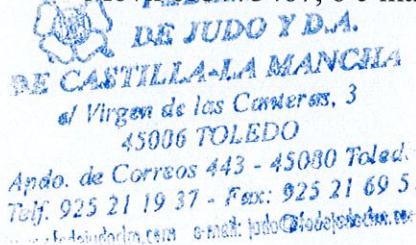 DE JUDO Y D.A.
DE CASTILLA-LA MANCHA
c/ Virgen de las
45006 TOLEDO
Apdo. de Correos 443 - 45080 Toled.
Telf. 925 21 19 37 - Fax: 925 21 69 5
e-mail: